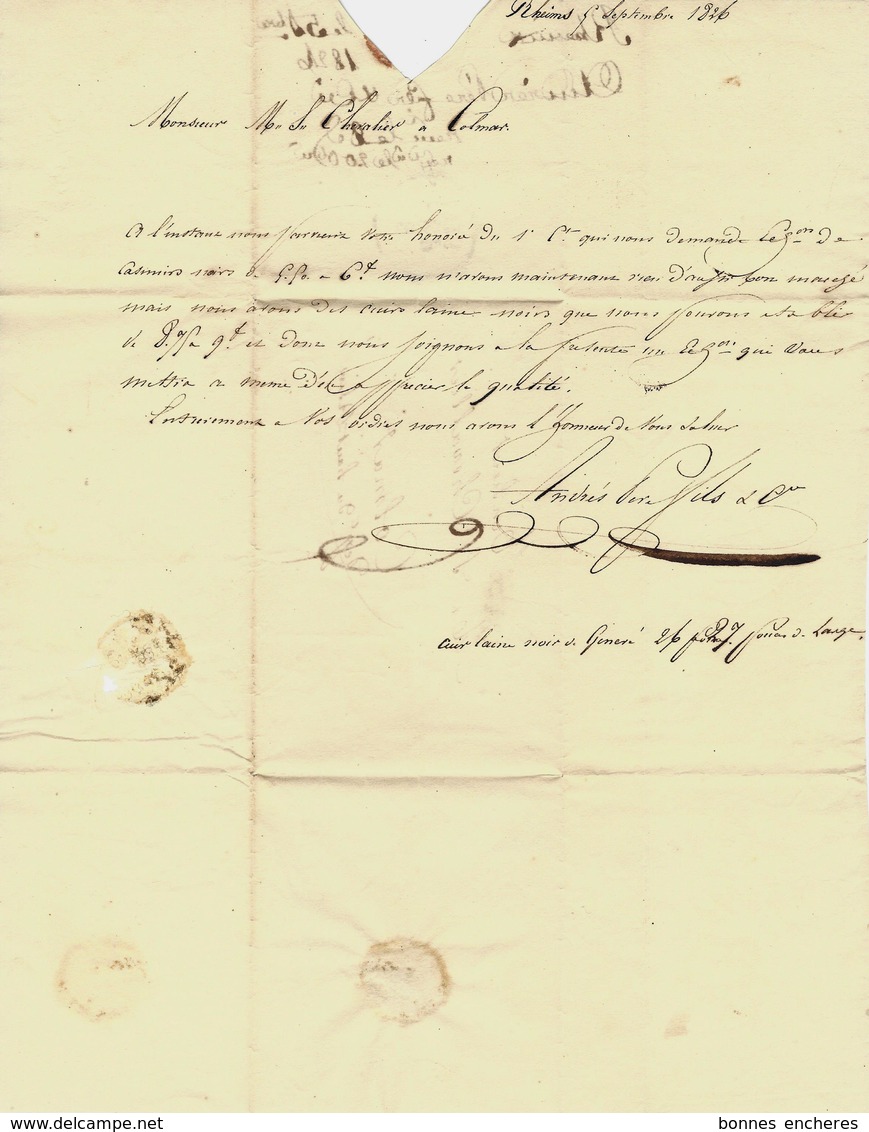 Rheims 5 Septembre 1826
Monsieur Mu Sn Chevalier a Colmar.
A l'instant nous parvient votre honoré du 1r Ct qui nous demande Echon de
Casimirs noirs de 5.50 a 6f nous n'avons maintenant rien d'aussi bon marché
mais nous avons des cuirs laine noirs que nous pourons etablir
de 8.75 a 9f et dont nous joignons a la presente un Echon qui vous
mettra a meme d'en apprecier la qualité.
Entierement a Vos ordres nous avons l'honneur de Vous saluer
Andrés Pere Fils & Cie
Cuir laine noir de Generé 26 pouces de Large.
bonnes encheres